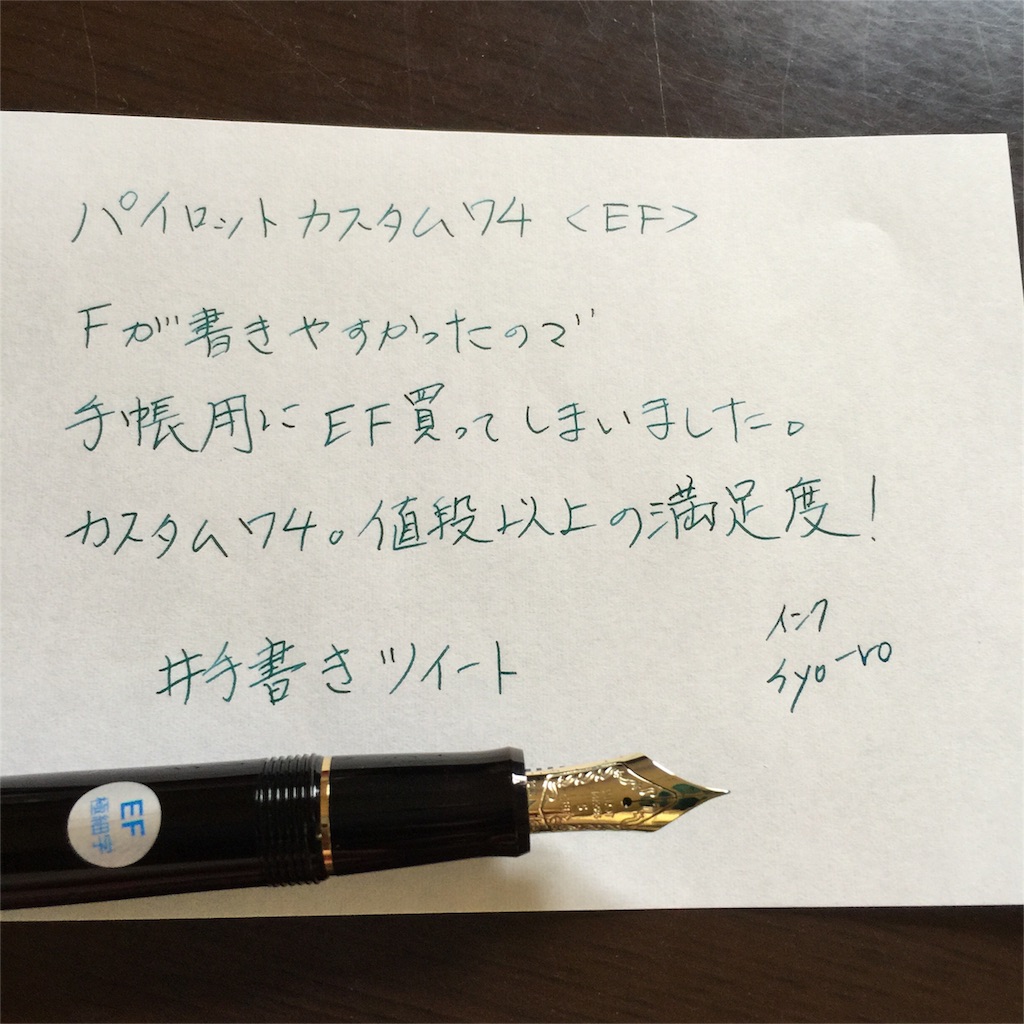 パイロット カスタム74 <EF>
Fが書きやすかったので
手帳用に EF買ってしまいました。
カスタム74。値段以上の満足度!
#手書きツイート
インク
syo-ro
EF
極細字